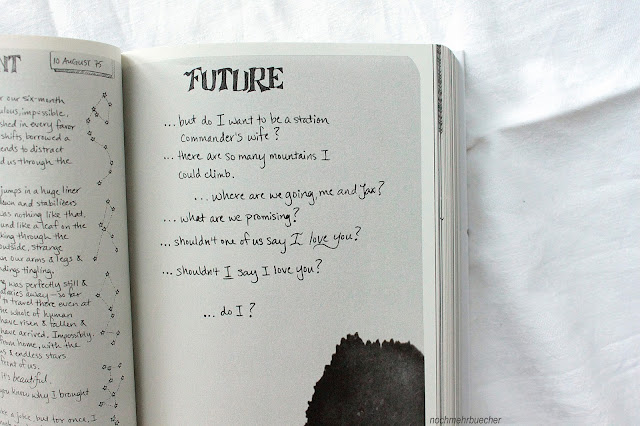 NT
10 AUGUST 75
r our six-month
ulous, impossible,
shed in every favor
shifts borrowed a
ends to distract
d us through the
jumps in a huge liner
down and stabilizers
was nothing like that.
und like a leaf on the
king through the
outside, strange
n our arms & legs &
ndings tingling.
g was perfectly still &
alaries away—so far
to travel there even at
he whole of human
have risen & fallen &
have arrived. Impossibly.
from home, with the
s & endless stars
front of us.
it's beautiful.
you know why I brought
e a joke, but for once, I
FUTURE
...but do I want to be a station
commander's wife?
...there are so many mountains I
could climb.
...where are we going, me and Jax?
...what are we promising?
...shouldn't one of us say I love you?
...shouldn't I say I love you?
...do I?
nochmehrbuecher